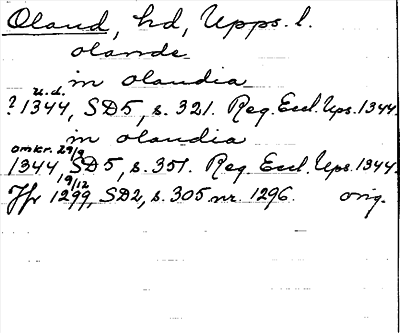 Oland, hd, Upps. l.
olande
in olandia
u.d.
? 1344, SD5, s. 321. Reg. Eccl. Ups. 1344.
in olandia
omkr. 29/9
1344, SD5, s. 351. Reg. Eccl. Ups. 1344.
19/12
Jfr 1299, SD2, s. 305 nr. 1296. orig.